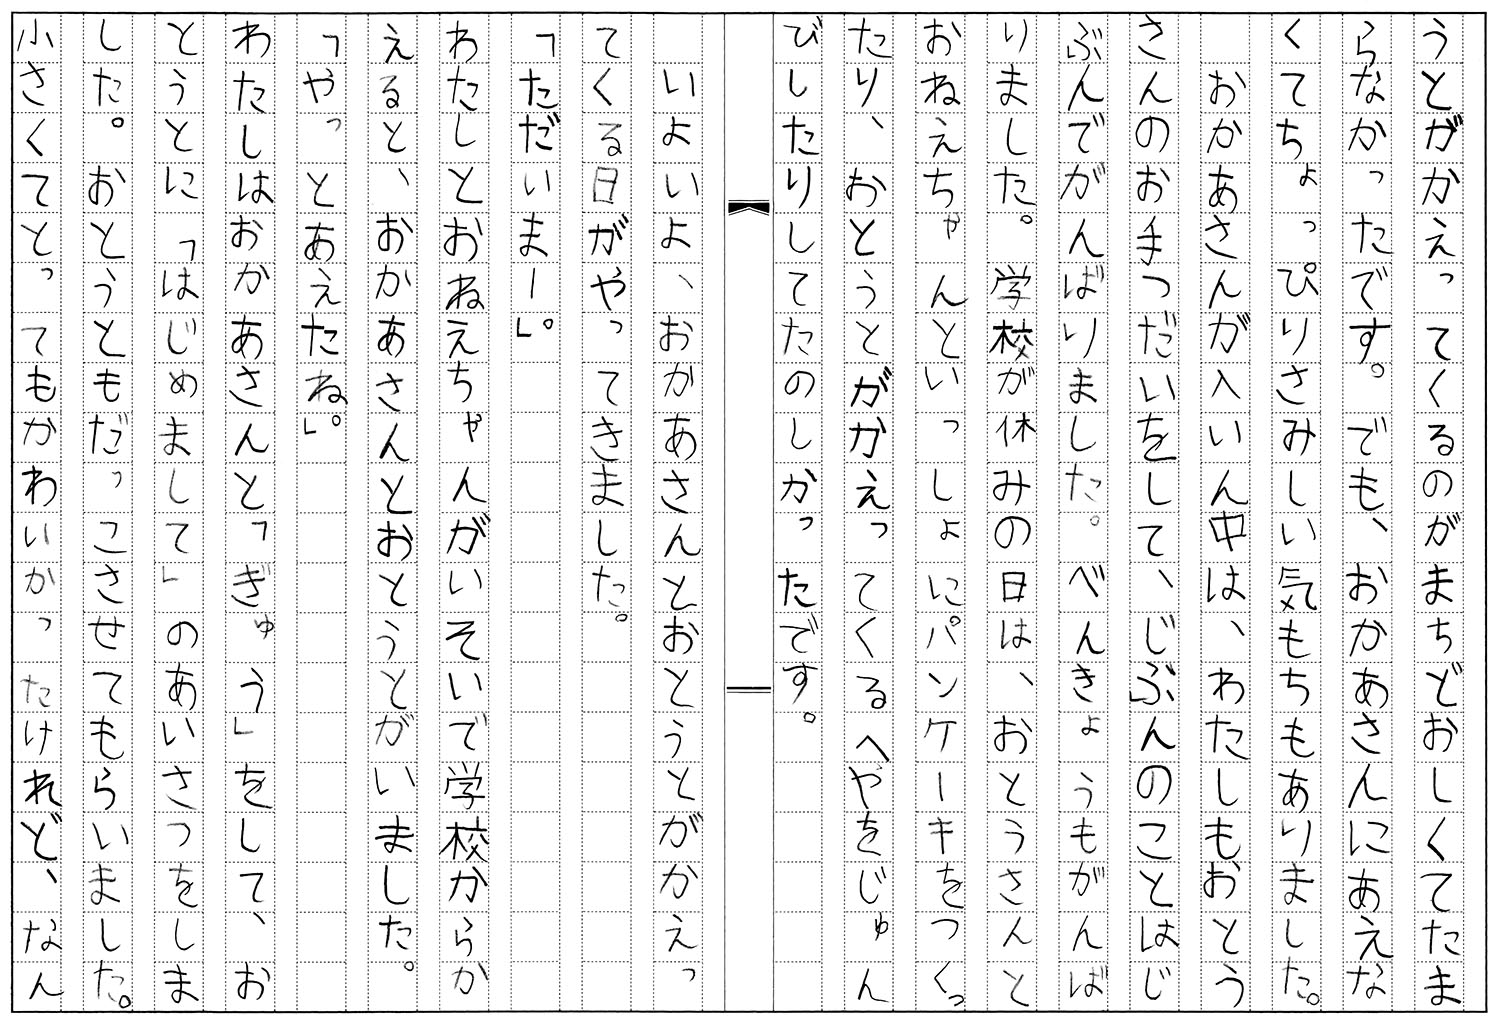 うとがかえってくるのがまちどおしくてたま
らなかったです。でも、おかあさんにあえな
くてちょっぴりさみしい気もちもありました。
おかあさんが入いん中は、わたしもおとう
さんのお手つだいをして、じぶんのことはじ
ぶんでがんばりました。べんきょうもがんば
りました。学校が休みの日は、おとうさんと
おねえちゃんといっしょにパンケーキをつくっ
たり、おとうとがかえってくるへやをじゅん
びしたりしてたのしかったです。
いよいよ、おかあさんとおとうとがかえっ
てくる日がやってきました。
「ただいまー」。
わたしとおねえちゃんがいそいで学校からか
えると、おかあさんとおとうとがいました。
「やっとあえたね」。
わたしはおかあさんと「ぎゅう」をして、お
とうとに「はじめまして」のあいさつをしま
した。おとうともだっこさせてもらいました。
小さくてとってもかわいかったけれど、なん